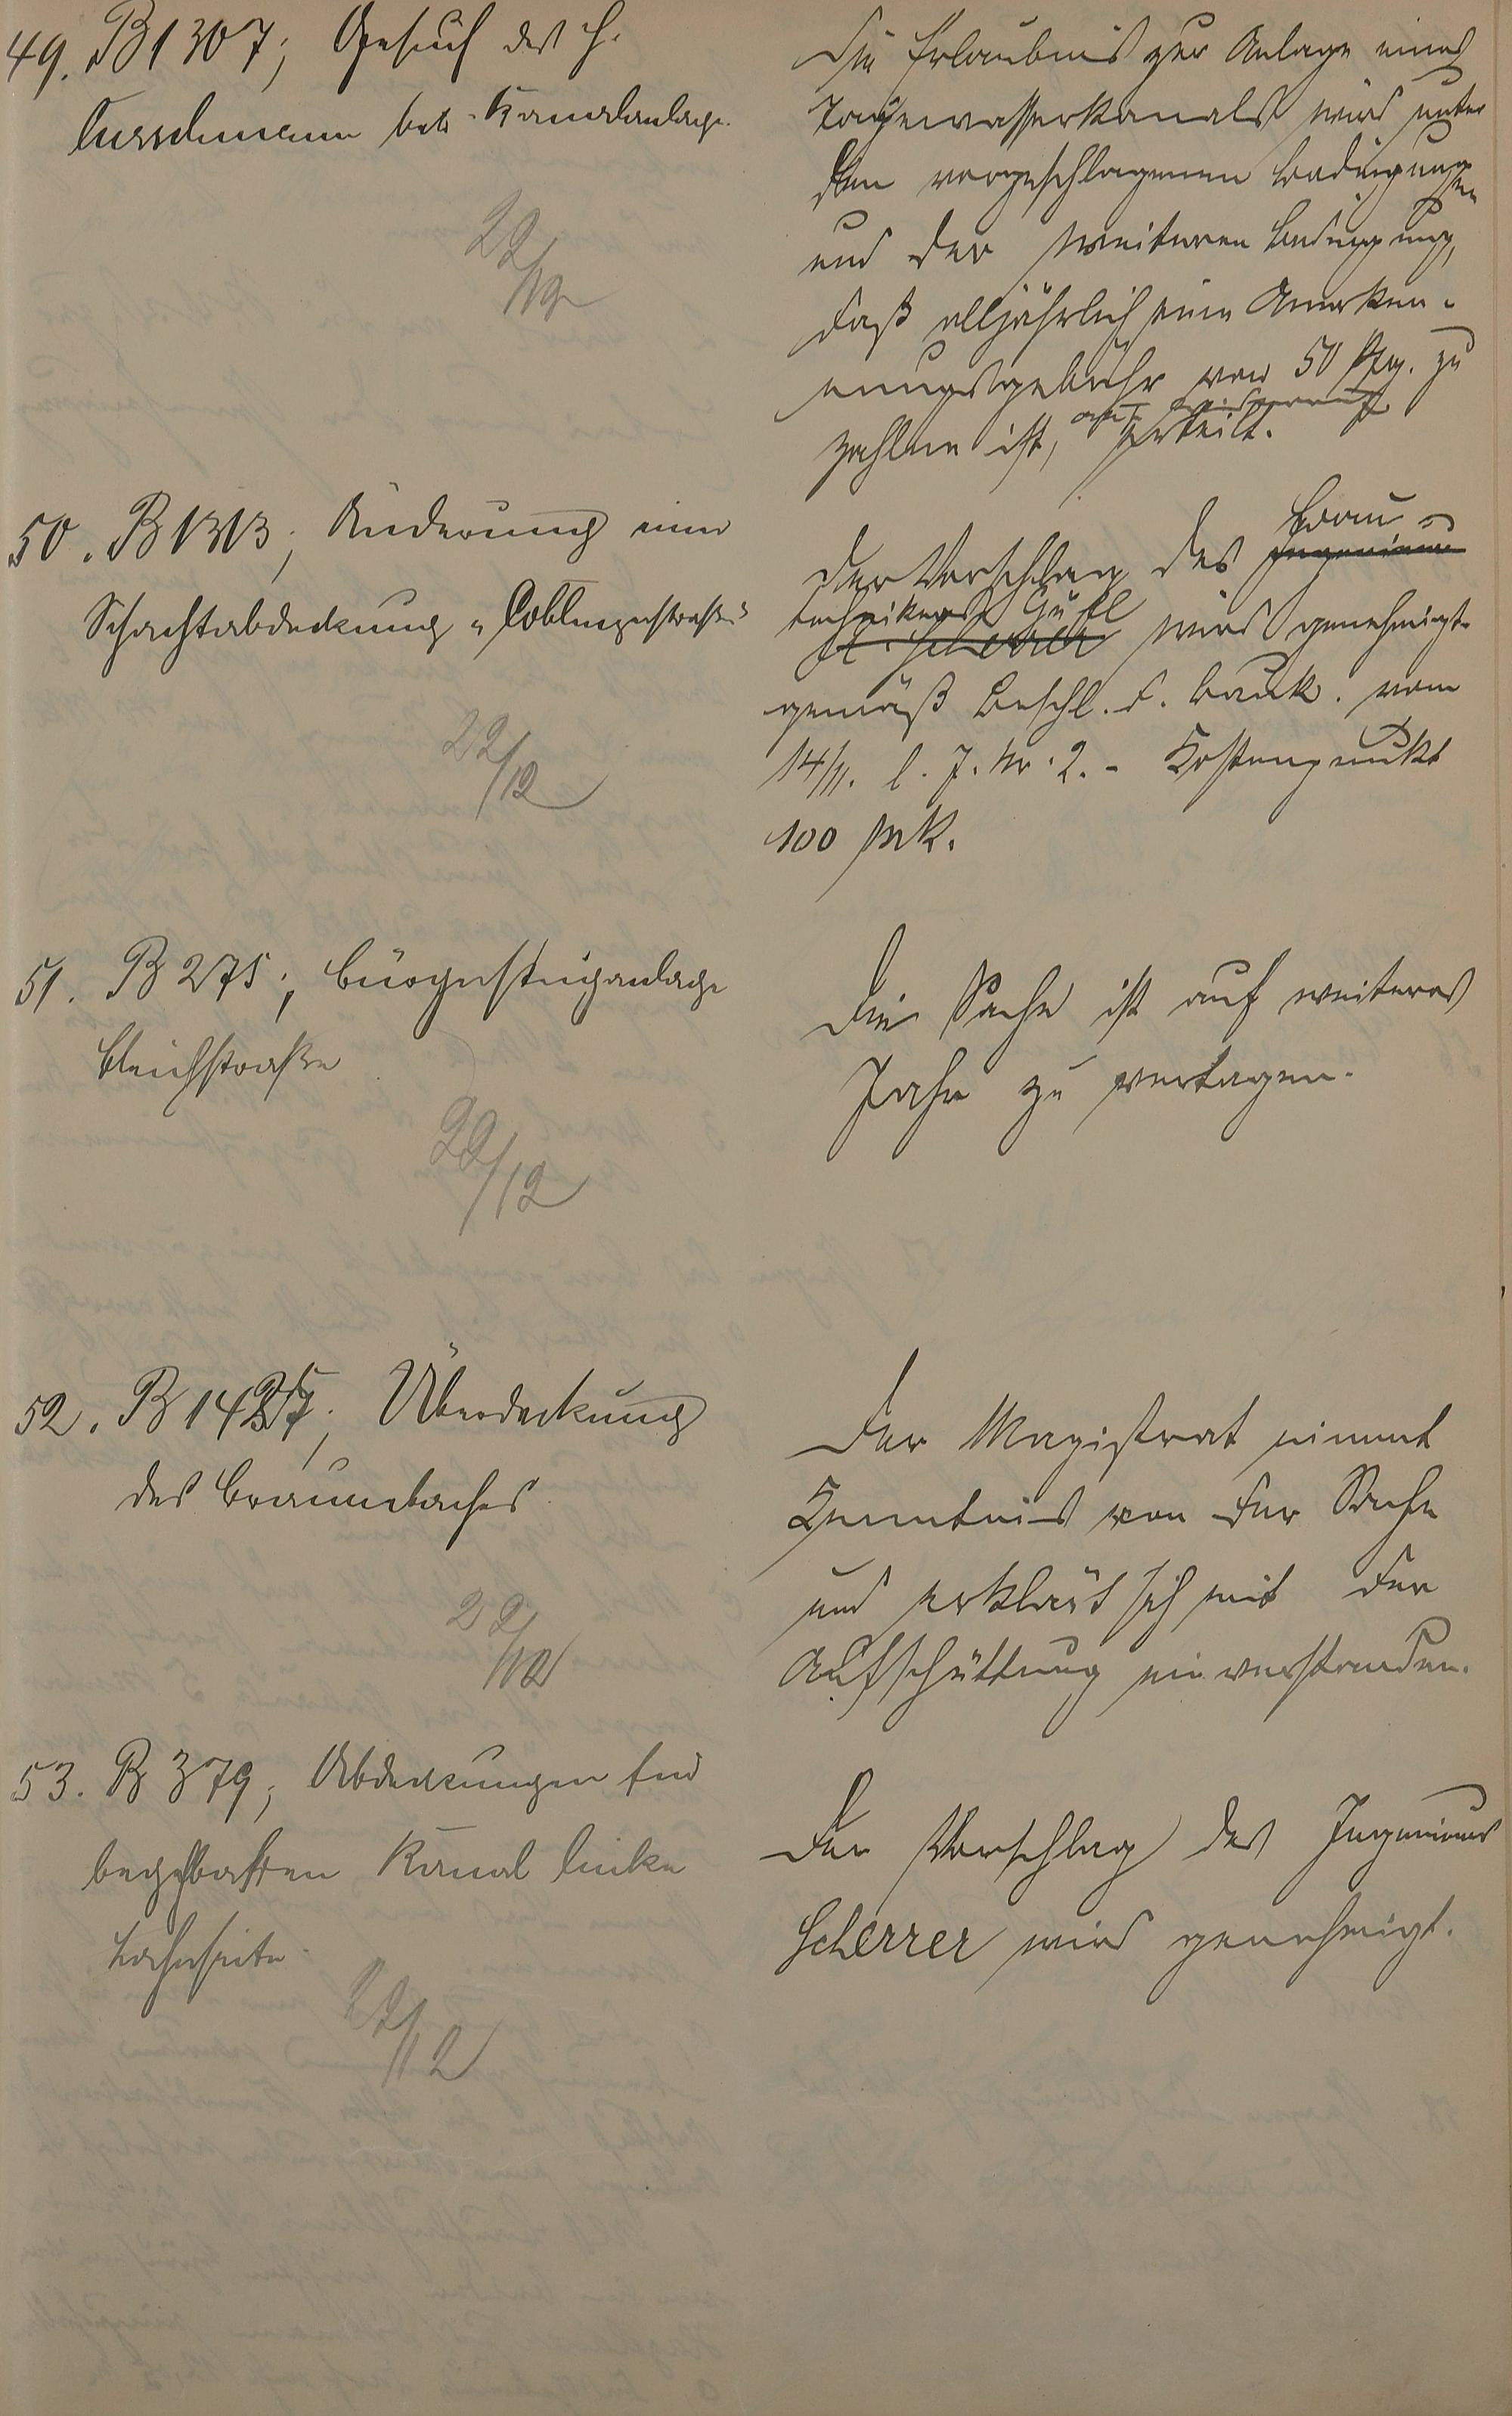 49. B 1307; Gesuch des H.
Curschmann betr. Kanalanlage.
22/12
Die Erlaubnis zur Anlage eines
Tagewasserkanals wird unter
den vorgeschlagenen Bedingungen
und der weiteren Bedingung,
daß alljährlich eine Anerken-
nungsgebühr von 50 Pfg. zu
zahlen ist, auf Widerruf
erteilt.
50. B 1313; Änderung einer
Schachtabdeckung "Coblenzerstraße"
22/12
Der Vorschlag des Ingenieurs Bau-
technikers Gühl
Scherrer wird genehmigt
gemäß Beschl. d. Bauk. vom
14/11. l. J. Nr. 2. - Kostenpunkt
100 Mk.
51. B 275; Bürgersteiganlage
Bleichstraße
22/12
Die Sache ist auf weiteres
Jahr zu vertagen.
52. B 1427; Überdeckung
des Braunbaches
22/12
Der Magistrat nimmt
Kenntnis von der Sache
und erklärt sich mit der
Aufschüttung einverstanden.
53. B 379; Abdeckungen für
begehbaren Kanal linke
Lahnseite.
22/12
Der Vorschlag des Ingenieurs
Scherrer wird genehmigt.